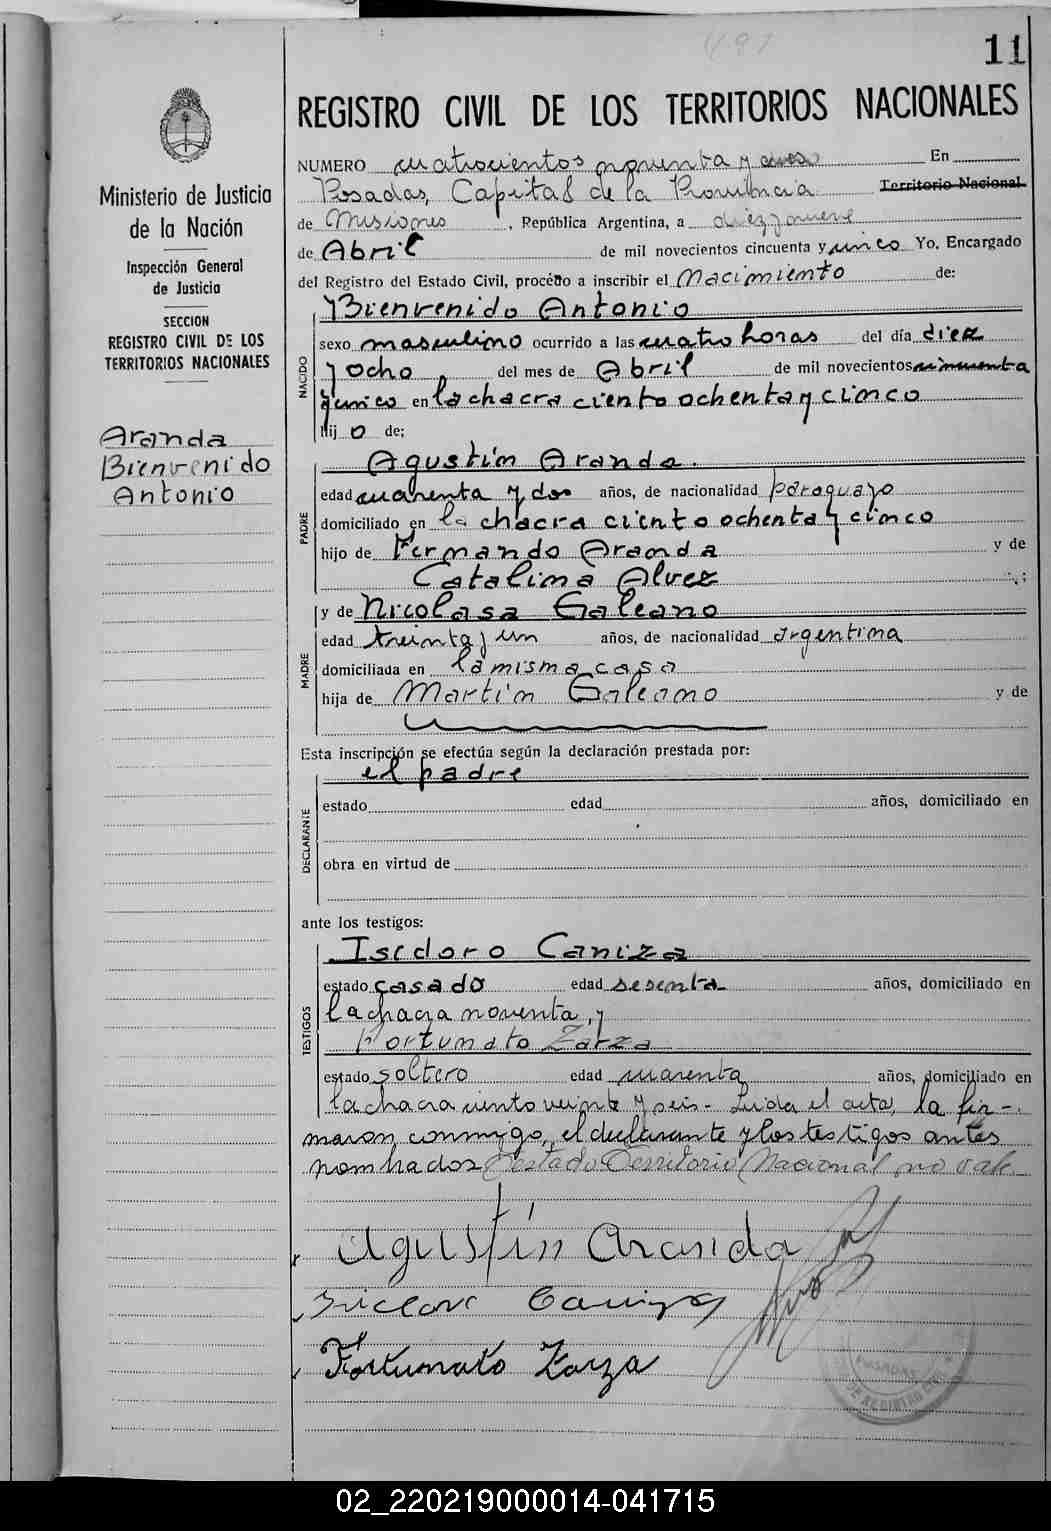 11
REGISTRO CIVIL DE LOS TERRITORIOS NACIONALES
Ministerio de Justicia
de la Nación
Inspección General
de Justicia
SECCION
REGISTRO CIVIL DE LOS
TERRITORIOS NACIONALES
Aranda
Bienvenido
Antonio
NUMERO cuatrocientos noventa y En
Posadas, Capital de la Provincia Territorio Nacional
de Misiones, República Argentina, a diez y nueve
de Abril de mil novecientos cincuenta y unico Yo, Encargado
del Registro del Estado Civil, procedo a inscribir el Nacimiento de:
NACIDO
Bienvenido Antonio
sexo masculino ocurrido a las cuatro horas del día diez
y ocho del mes de Abril de mil novecientos cincuenta
y unico en la chacra ciento ochenta y cinco
Hijo de:
PADRE
Agustín Aranda.
edad cuarenta y dos años, de nacionalidad paraguayo
domiciliado en la chacra ciento ochenta y cinco
hijo de Fernando Aranda y de
Catalina Alvez ;
MADRE
y de Nicolasa Galeano
edad treinta y un años, de nacionalidad argentina
domiciliada en la misma casa
hija de Martín Galeano y de
Esta inscripción se efectúa según la declaración prestada por:
DECLARANTE
el padre
estado edad años, domiciliado en
obra en virtud de
ante los testigos:
TESTIGOS
Isidoro Caniza
estado casado edad sesenta años, domiciliado en
la chacra noventa, y
Fortunato Zarza
estado soltero edad cuarenta años, domiciliado en
la chacra ciento veinte y seis - Leida el acta, la fir-
maron conmigo, el declarante y los testigos antes
nombrados Testado Territorio Nacional no vale
Agustín Aranda
Isidoro Caniza
Fortunato Zarza
POSADAS
02_220219000014-041715